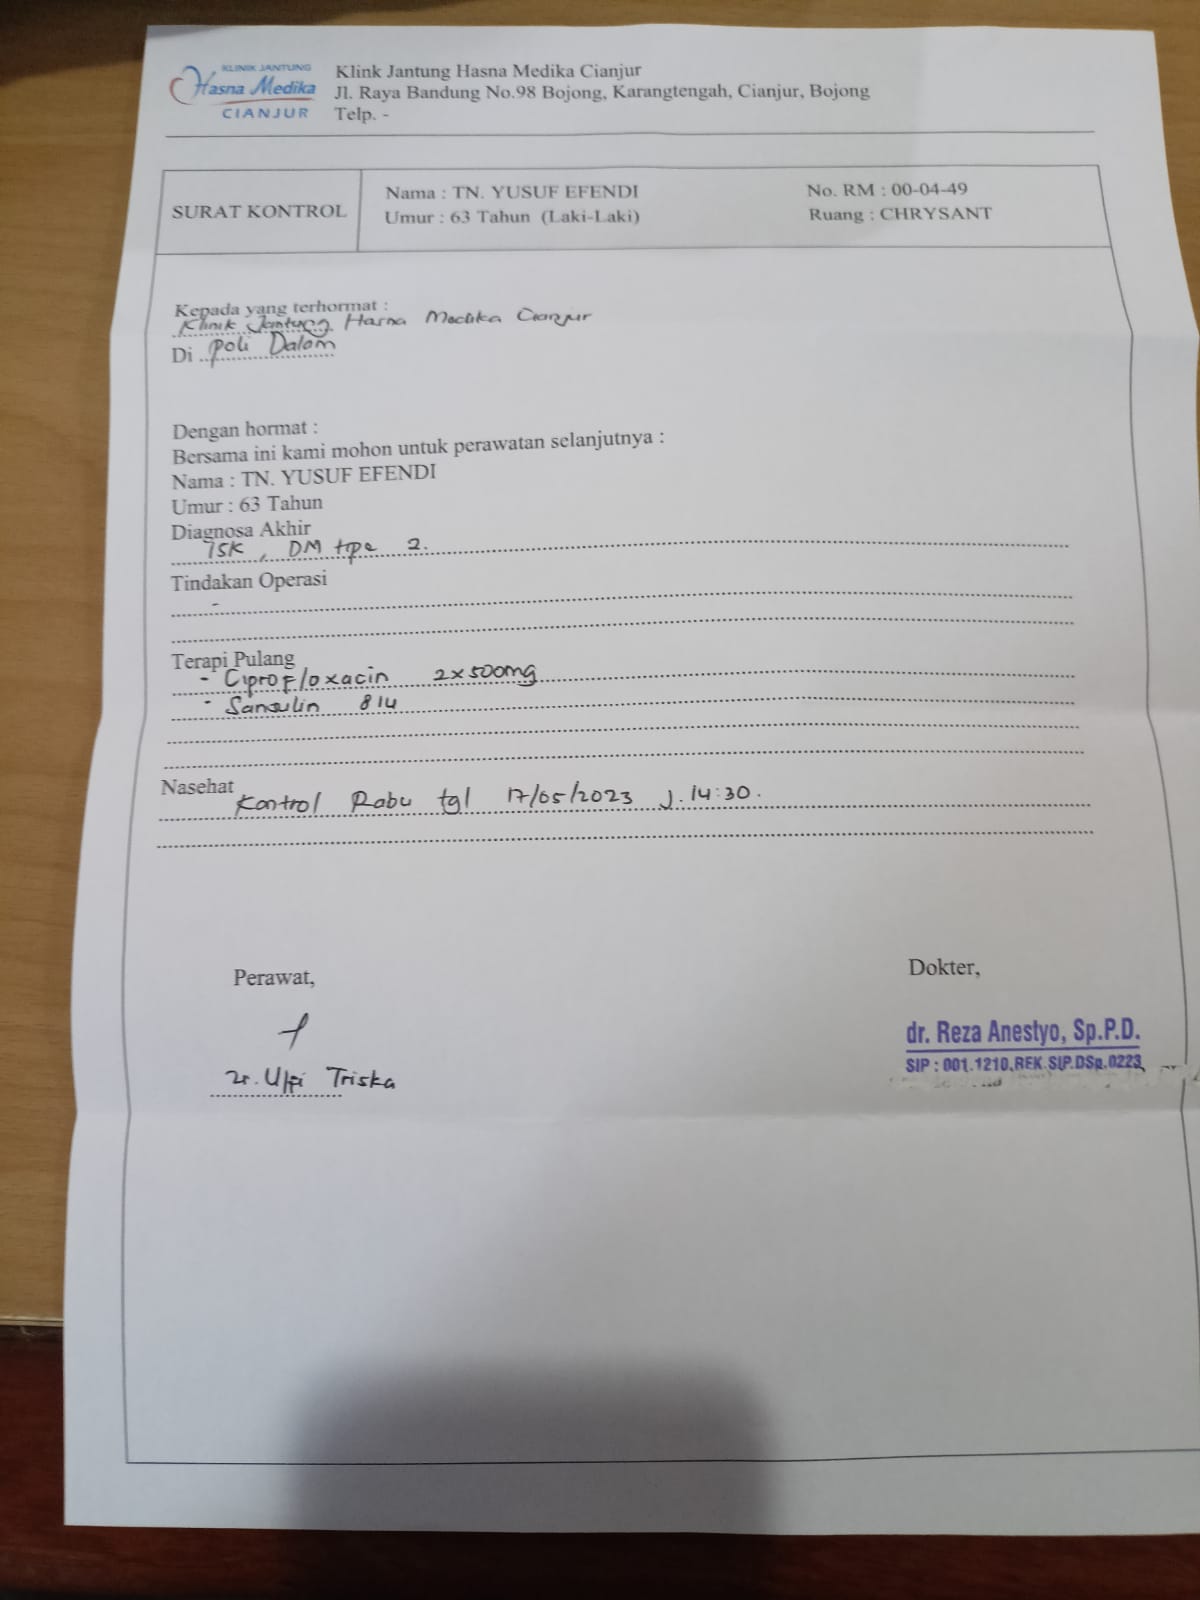 KLINIK JANTUNG
Hasna Medika
CIANJUR
Klink Jantung Hasna Medika Cianjur
Jl. Raya Bandung No.98 Bojong, Karangtengah, Cianjur, Bojong
Telp. -
SURAT KONTROL
Nama : TN. YUSUF EFENDI
Umur : 63 Tahun (Laki-Laki)
No. RM : 00-04-49
Ruang : CHRYSANT
Kepada yang terhormat :
Klinik Jantung Hasna Medika Cianjur
Di Poli Dalam
Dengan hormat :
Bersama ini kami mohon untuk perawatan selanjutnya :
Nama : TN. YUSUF EFENDI
Umur : 63 Tahun
Diagnosa Akhir
ISK, DM tipe 2.
Tindakan Operasi
-
Terapi Pulang
- Ciprofloxacin 2x500mg
- Sansulin
Nasehat
Kontrol Rabu tgl 17/05/2023 J. 14:30.
Perawat,
Dokter,
dr. Reza Anestyo, Sp.P.D.
SIP : 001.1210.REK.SIP.DSp.0223
Zr. Ulfi Triska